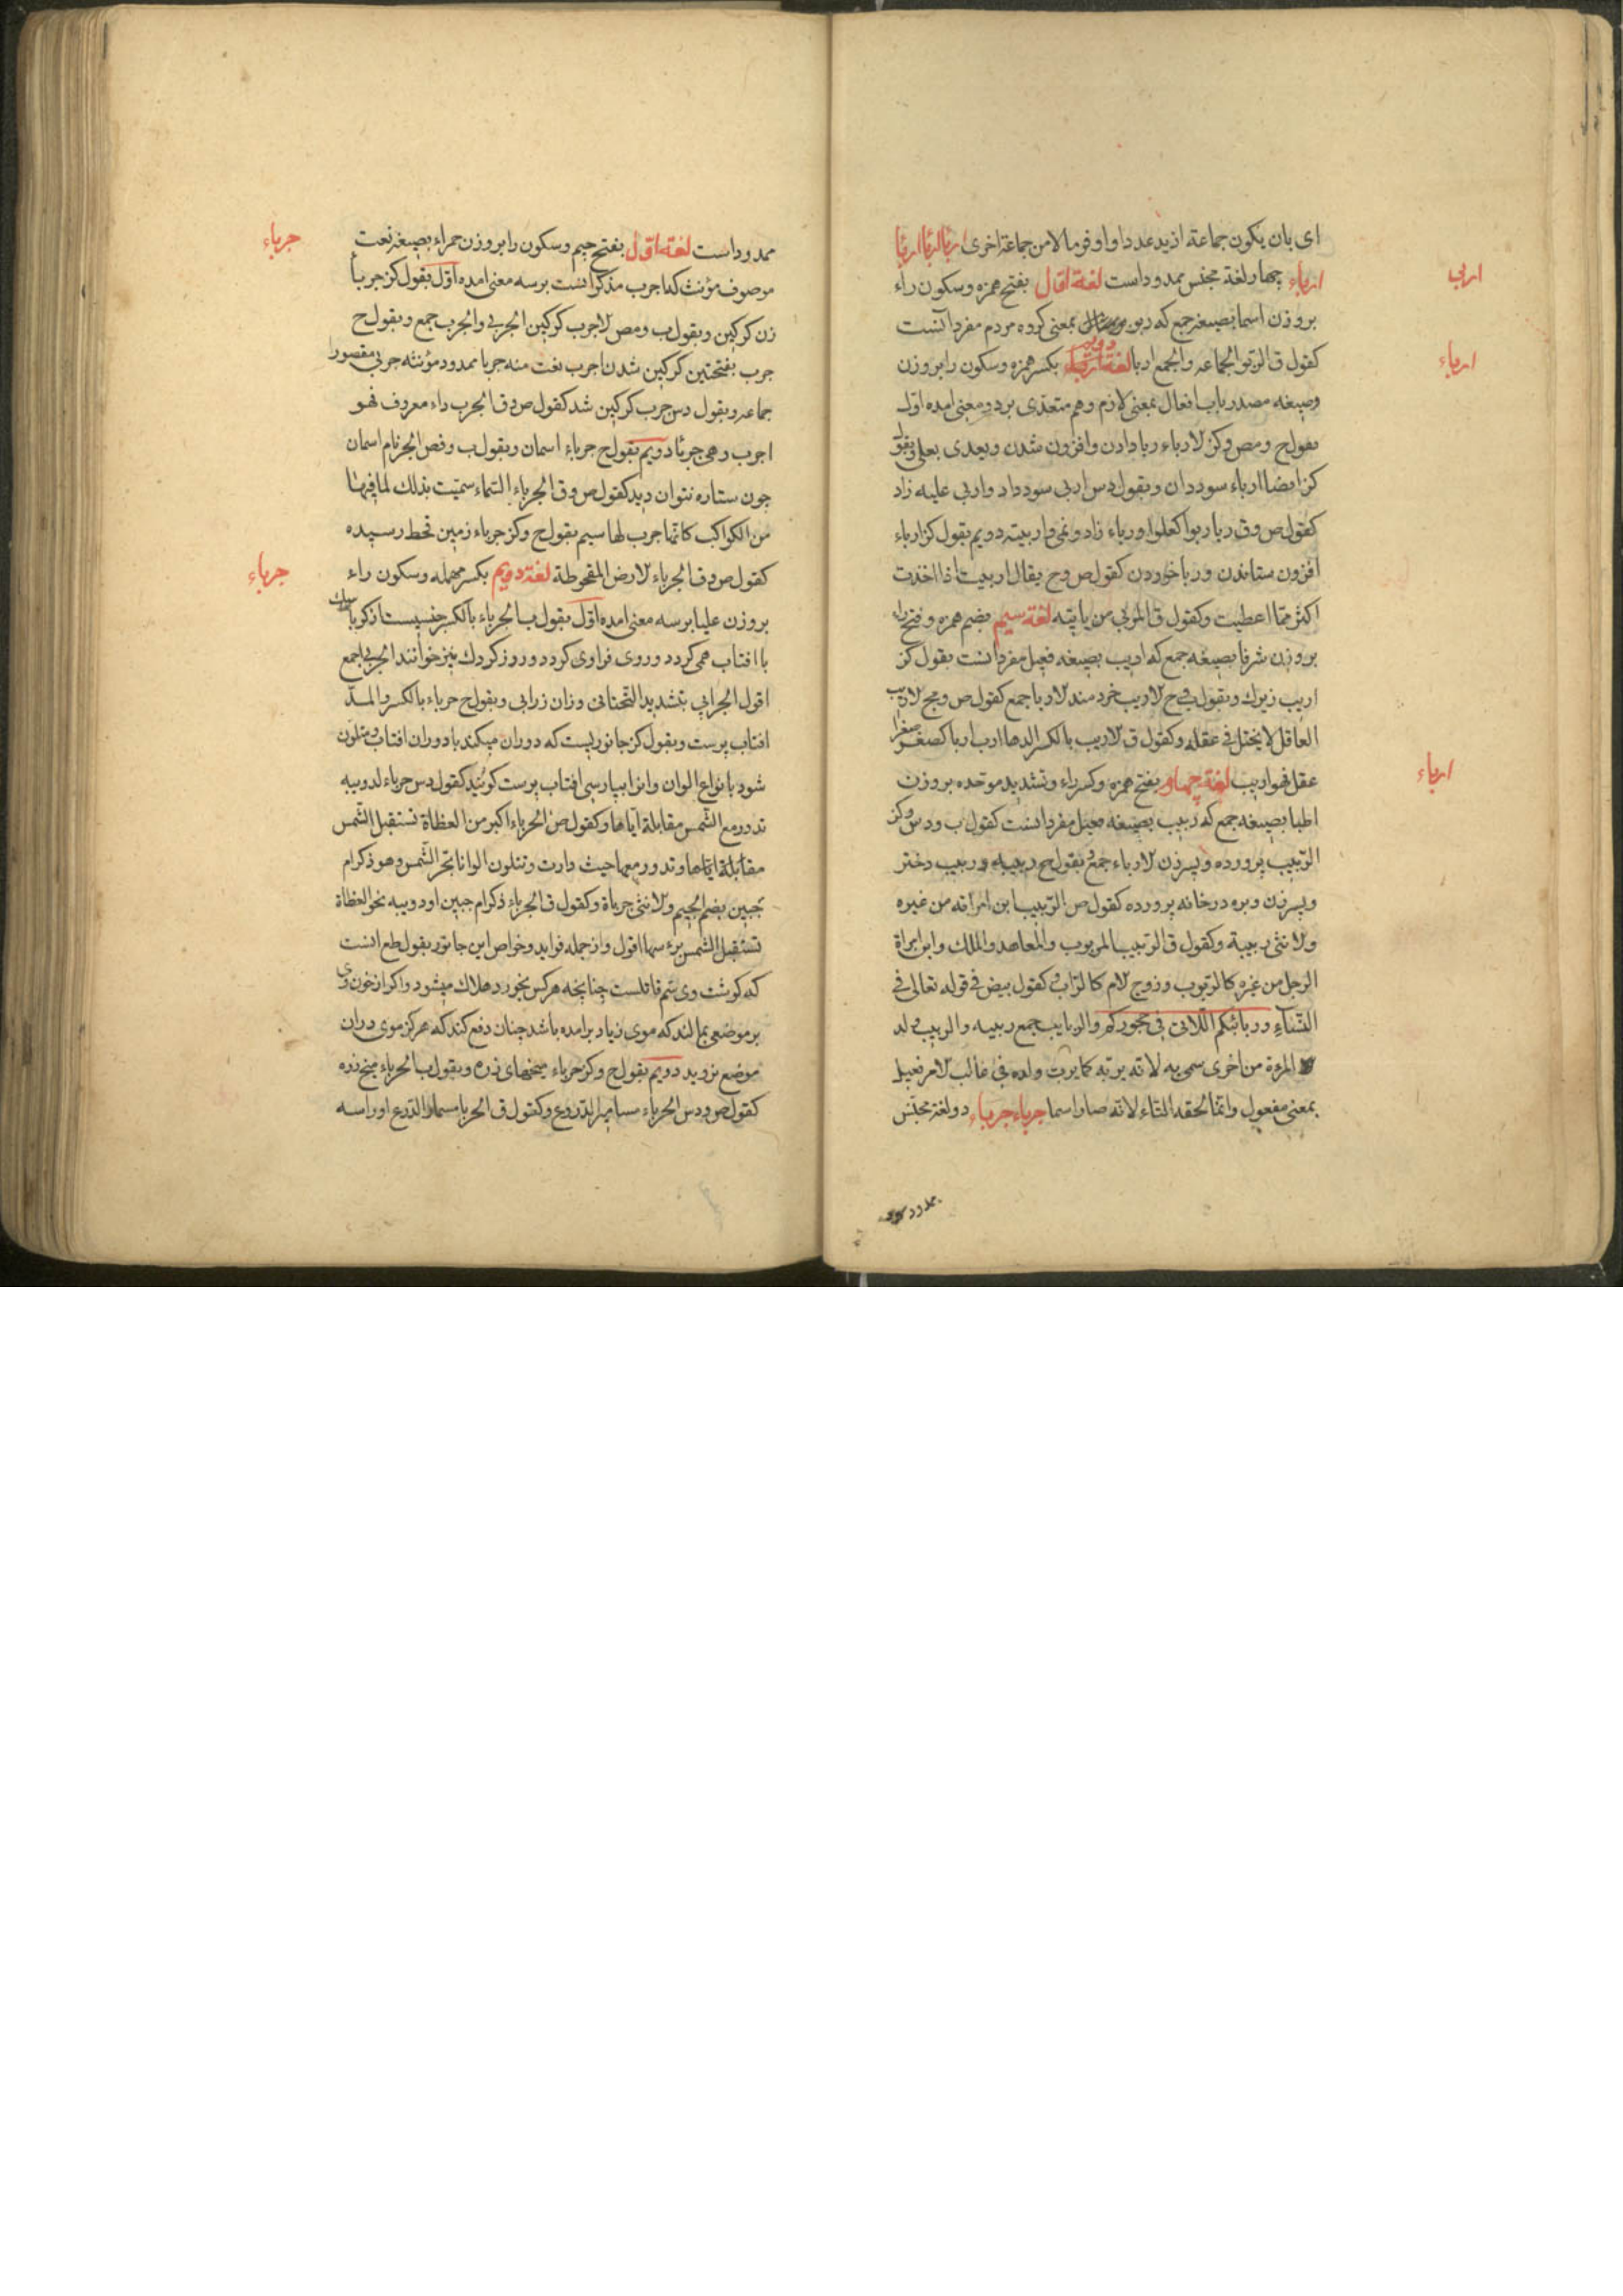 ای بان یکون جماعة ازید عددا واوفر مالا من جماعة اخری اربا اربا اربا
اربی
ارباء چهار لغة مجنس ممدود است لغة اوّل بفتح همزه وسکون راء
بروزن اسما بصیغه جمع که ربو بمعنی کرده مردم مفرد آنست
ارباء
کقول ق الربو الجماعه والجمع اربا لغة دویم بکسر همزه وسکون را بروزن
وصیغه مصدر باب افعال بمعنی لازم وهم متعدی بر دو معنی امده اول
بقول ح ومص وکز لارباء ربا دادن وافزون شدن ویعدی بعلی وبقول
کز ایضا ارباء سود دان وبقول دس اربی سود داد واربی علیه زاد
کقول ص وق ربا ربوا کعلوا ورباء زاد ونمی واربیته دویم بقول کز ارباء
افزون ستاندن وربا خوردن کقول ص وح یقال اربیت اذا اخذت
اکثر مما اعطیت وکقول ق المربی من یاتیه لغة سیم بضم همزه وفتح راء
بروزن شرفا بصیغه جمع که اریب بصیغه فعیل مفرد انست بقول کز
اریب زیرک وبقول ح لاریب خردمند لاربا جمع کقول ص ومج لاریب
العاقل لا یختل فی عقله وکقول ق لاریب بالکسر الدها ارب اربا کصغر صغرا
ارباء
عقل فهو اریب لغة چهار بفتح همزه وکسر راء وتشدید موحده بروزن
اطبا بصیغه جمع که ربیب بصیغه فعیل مفرد انست کقول ب ودس وکز
الربیب پرورده وپسر زن لارباء جمع وبقول ح ربیبه وربیب دختر
وپسر زن وبره در خانه پرورده کقول ص الربیب ابن امراته من غیره
ولانثی ربیبة وکقول ق الربیب المربوب والمعاهد والملک وابن امراة
الرجل من غیره کالربوب وزوج لام کالراب وکقول بیض فی قوله تعالی فی
النساء وربائبکم اللاتی فی حجورکم والربایب جمع ربیبه والربیب ولد
المرءة من اخری سمی به لانه یربه کما یرب ولده فی غالب لامر فعیل
بمعنی مفعول وانما لحقه التاء لانه صار اسما جرباء حرباء دو لغة مجنس
ممدود
جرباء
ممدود است لغة اوّل بفتح جیم وسکون را بروزن حمراء بصیغه نعت
موصوف مؤنث که اجرب مذکر انست بر سه معنی امده اوّل بقول کز جربا
زن کرکین وبقول ب ومص لاجرب کرکین الجربی والجرب جمع وبقول ح
جرب بفتحتین کرکین شدن اجرب نعت منه جربا ممدود مؤنثه جربی مقصورا
جماعه وبقول دس جرب کرکین شد کقول ص وق الجرب داء معروف فهو
اجرب وهی جرباء دویم بقول ح جرباء اسمان وبقول ب وفص الجر نام اسمان
چون ستاره نتوان دید کقول ص وق الجرباء السماء سمیت بذلک لما فیها
من الکواکب کانها جرب لها سیم بقول ح وکز جرباء زمین قحط رسیده
حرباء
کقول ص وق الجرباء لارض المقحوطة لغة دویم بکسر مهمله وسکون راء
بروزن علیا بر سه معنی امده اوّل بقول ب الحرباء بالکسر جنسیست از کرباسک
با افتاب همی کردد وروی فرا وی کردد وروز کردک نیز خوانند الحربی جمع
اقول الحرابی بتشدید التحتانی وزان زرابی وبقول ح حرباء بالکسر والمد
افتاب پرست وبقول کز جانوریست که دوران میکند با دوران افتاب ومتلون
شود بانواع الوان وانرا بپارسی افتاب پرست کویند کقول دس حرباء لدویبه
تدور مع الشمس مقابلة ایاها وکقول ص الحرباء اکبر من العظاة تستقبل الشمس
مقابلة ایاها وتدور معها حیث دارت وتتلون الوانا بحر الشمس وهو ذکر ام
حبین بضم الجیم ولانثی حرباة وکقول ق الحرباء ذکر ام حبین او دویبه نحو العظاة
تستقبل الشمس براسها اقول واز جمله فواید وخواص این جانور بقول طع انست
که کوشت وی سم قاتلست چنانچه هر کس بخورد هلاک میشود واکر از خون وی
بر موضعی بمالند که موی زیاد برامده باشد چنان دفع کند که هرکز موی دران
موضع نروید دویم بقول ح وکز حرباء میخهای زره وبقول ب الحرباء میخ زره
کقول ص ودس الحرباء مسامیر الدروع وکقول ق الحربا مسمار الدرع او راسه